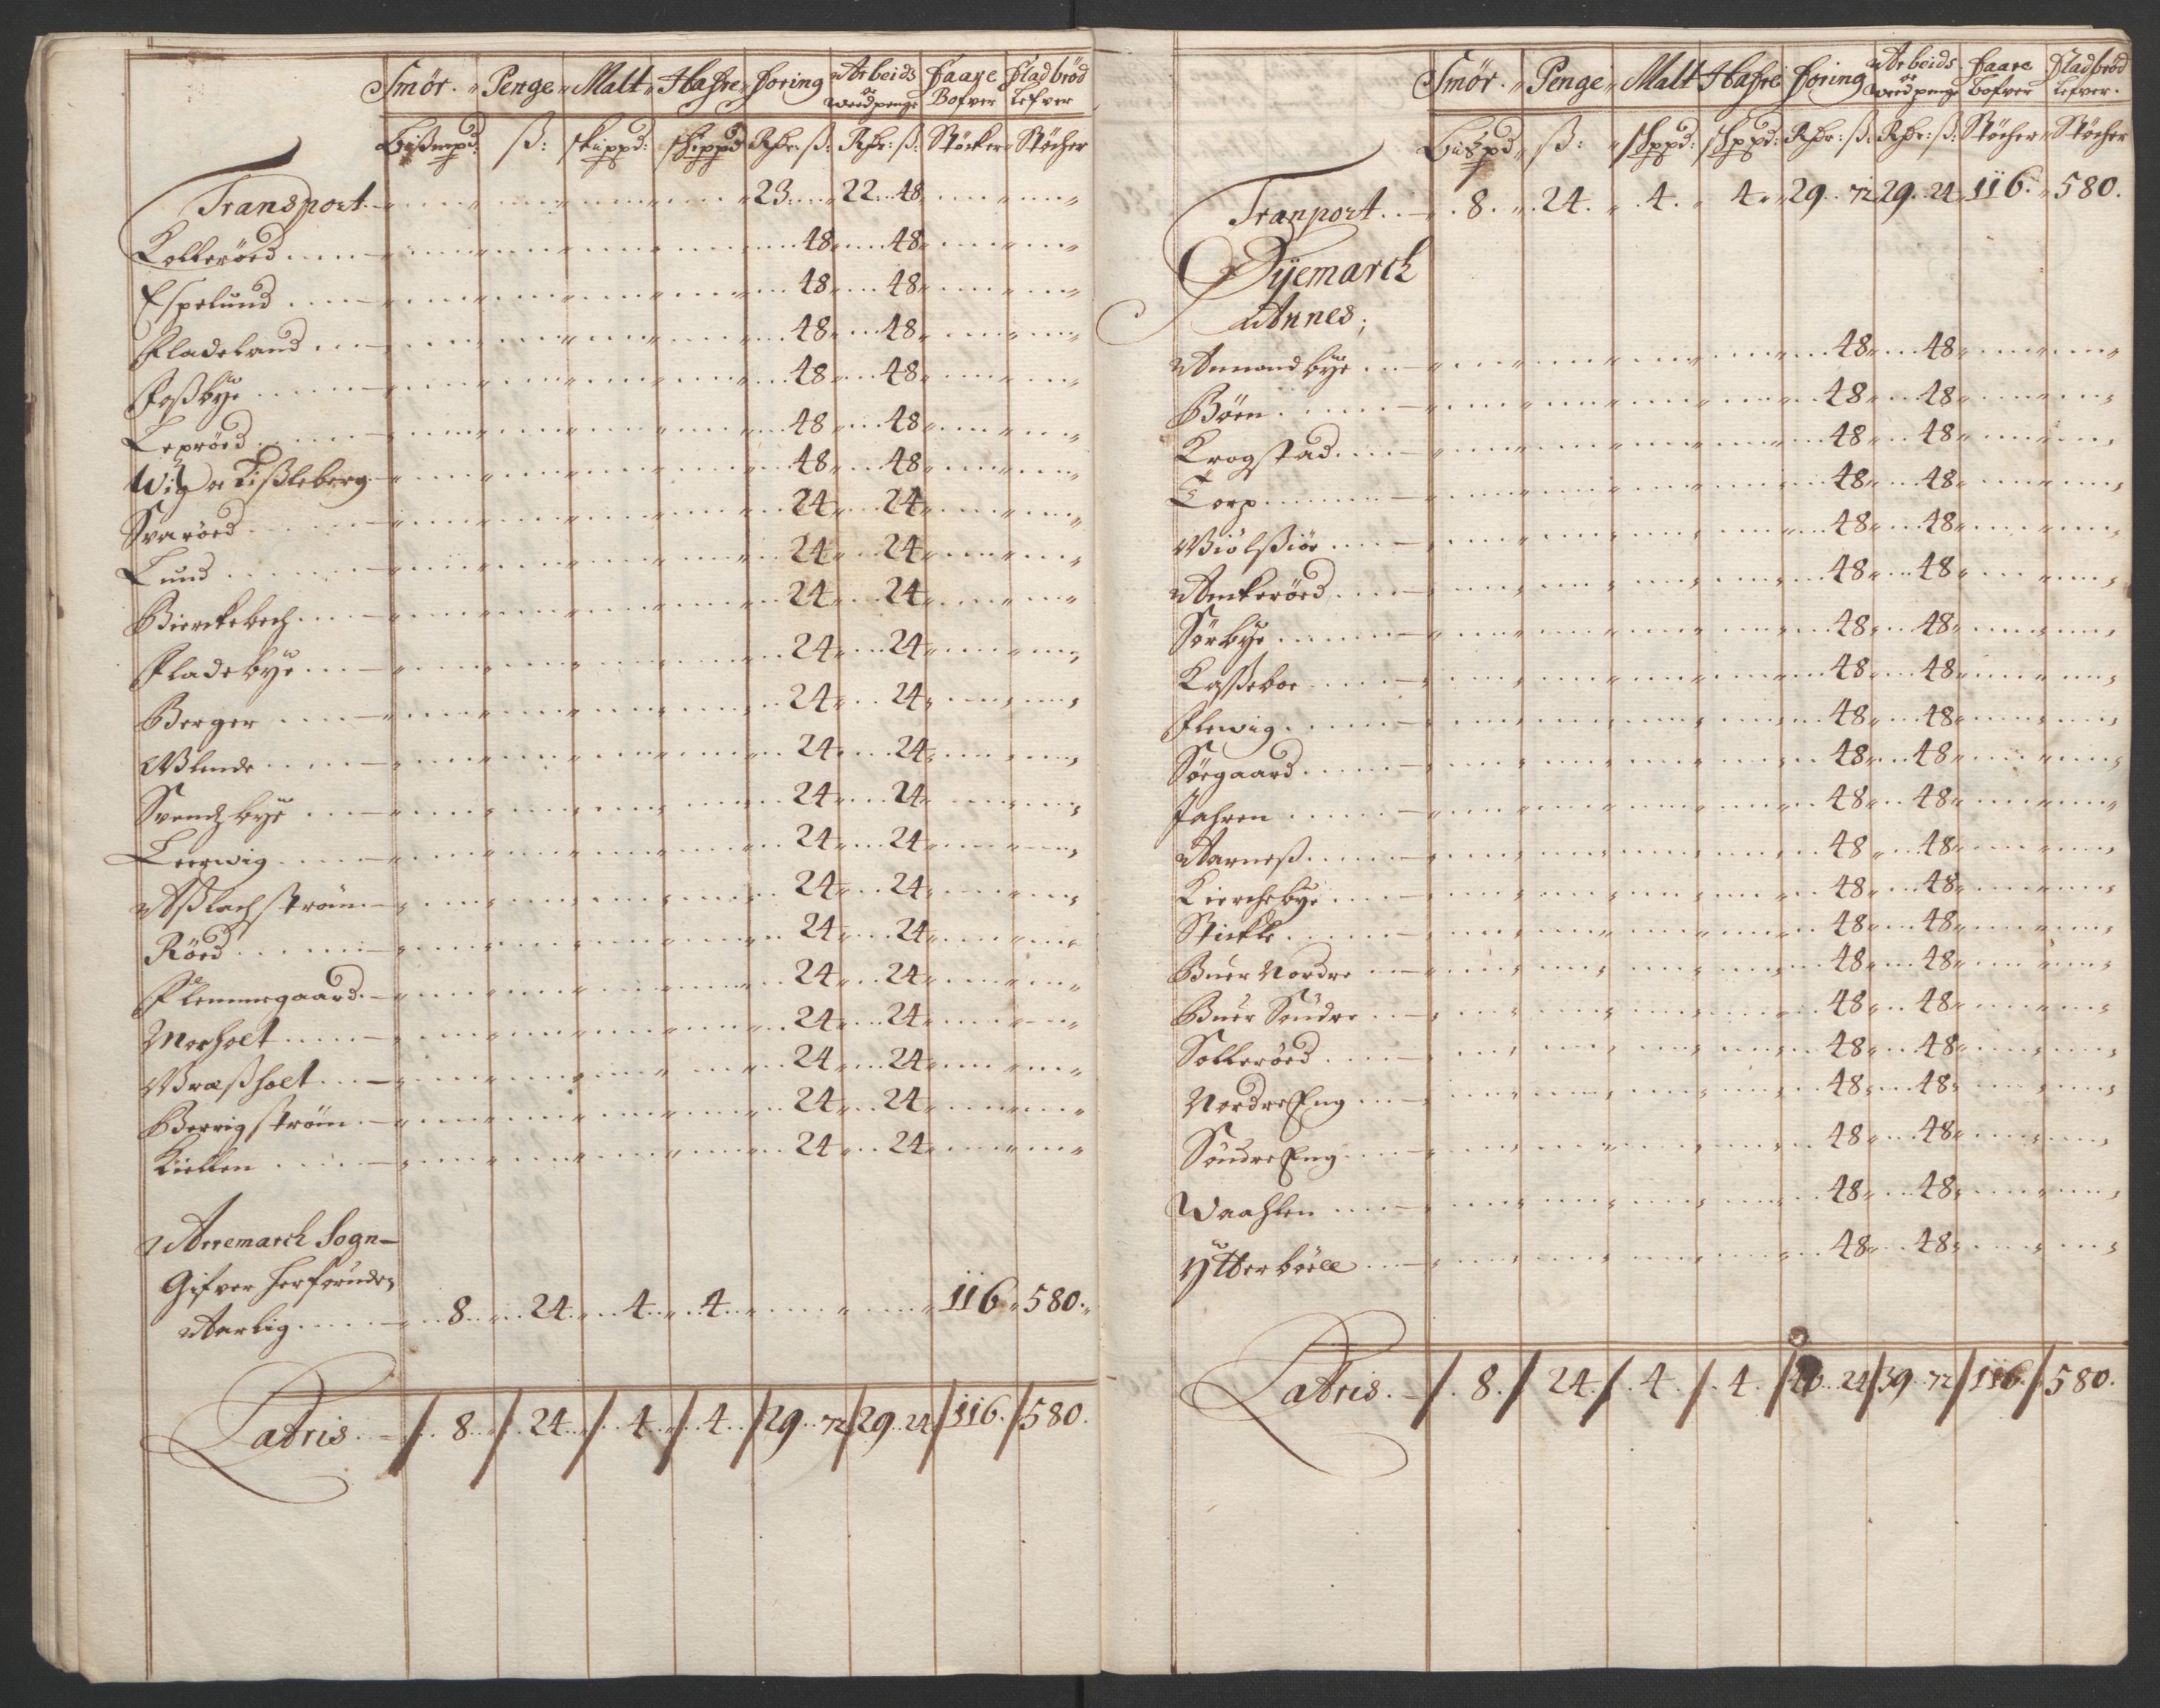 Smör. Penge Malt Hafre Foring Arbeids oc Wedpenge Faare Bofver Fladbröd Lefver
Bißmpd: ß: skippd: skippd Rdr: ß: Rdr: ß: Støcker Støcher
Transport 23 22 48
Kolleröed 48 48
Espelund 48 48
Fladeland 48 48
Foßbye 48 48
Lepröed 48 48
Wiig oc Tißleberg 48 48
Svaröed 24 24
Lund 24 24
Bierckebech 24 24
Fladebye 24 24
Berger 24 24
Blinde 24 24
Svendzbye 24 24
Leerwig 24 24
Aßlachström 24 24
Röed 24 24
Flemmegaard 24 24
Morholt 24 24
Braßholt 24 24
Berrigström 24 24
Kiellen 24 24
Arremarch Sogn
Gifver herforuden
Aarlig 8 24 4 4 116 580
Latris 8 24 4 4 29 72 29 24 116 580
Smör. Penge Malt Hafre Foring Arbeids oc Wedpenge Faare Bofver Fladbröd Lefver.
Bißpd ß: skppd: skppd: Rdr: ß: Rdr: ß: Støcher Støcher
Tranport 8 24 4 4 29 72 29 24 116 580
Dyemarch
Annes;
Amondbye 48 48
Böen 48 48
Krogstad 48 48
Torp 48 48
Biölßiöe 48 48
Anckeröed 48 48
Sörbye 48 48
Kaßeboe 48 48
Flewig 48 48
Sörgaard 48 48
Jahren 48 48
Aarneß 48 48
Kierchebye 48 48
Stickle 48 48
Buer Nordre 48 48
Buer Söndre 48 48
Solleröed 48 48
Nordre Eng 48 48
Söndre Eng 48 48
Waahlen 48 48
Ytterböell 48 48
Latris 8 24 4 4 40 24 39 72 116 580